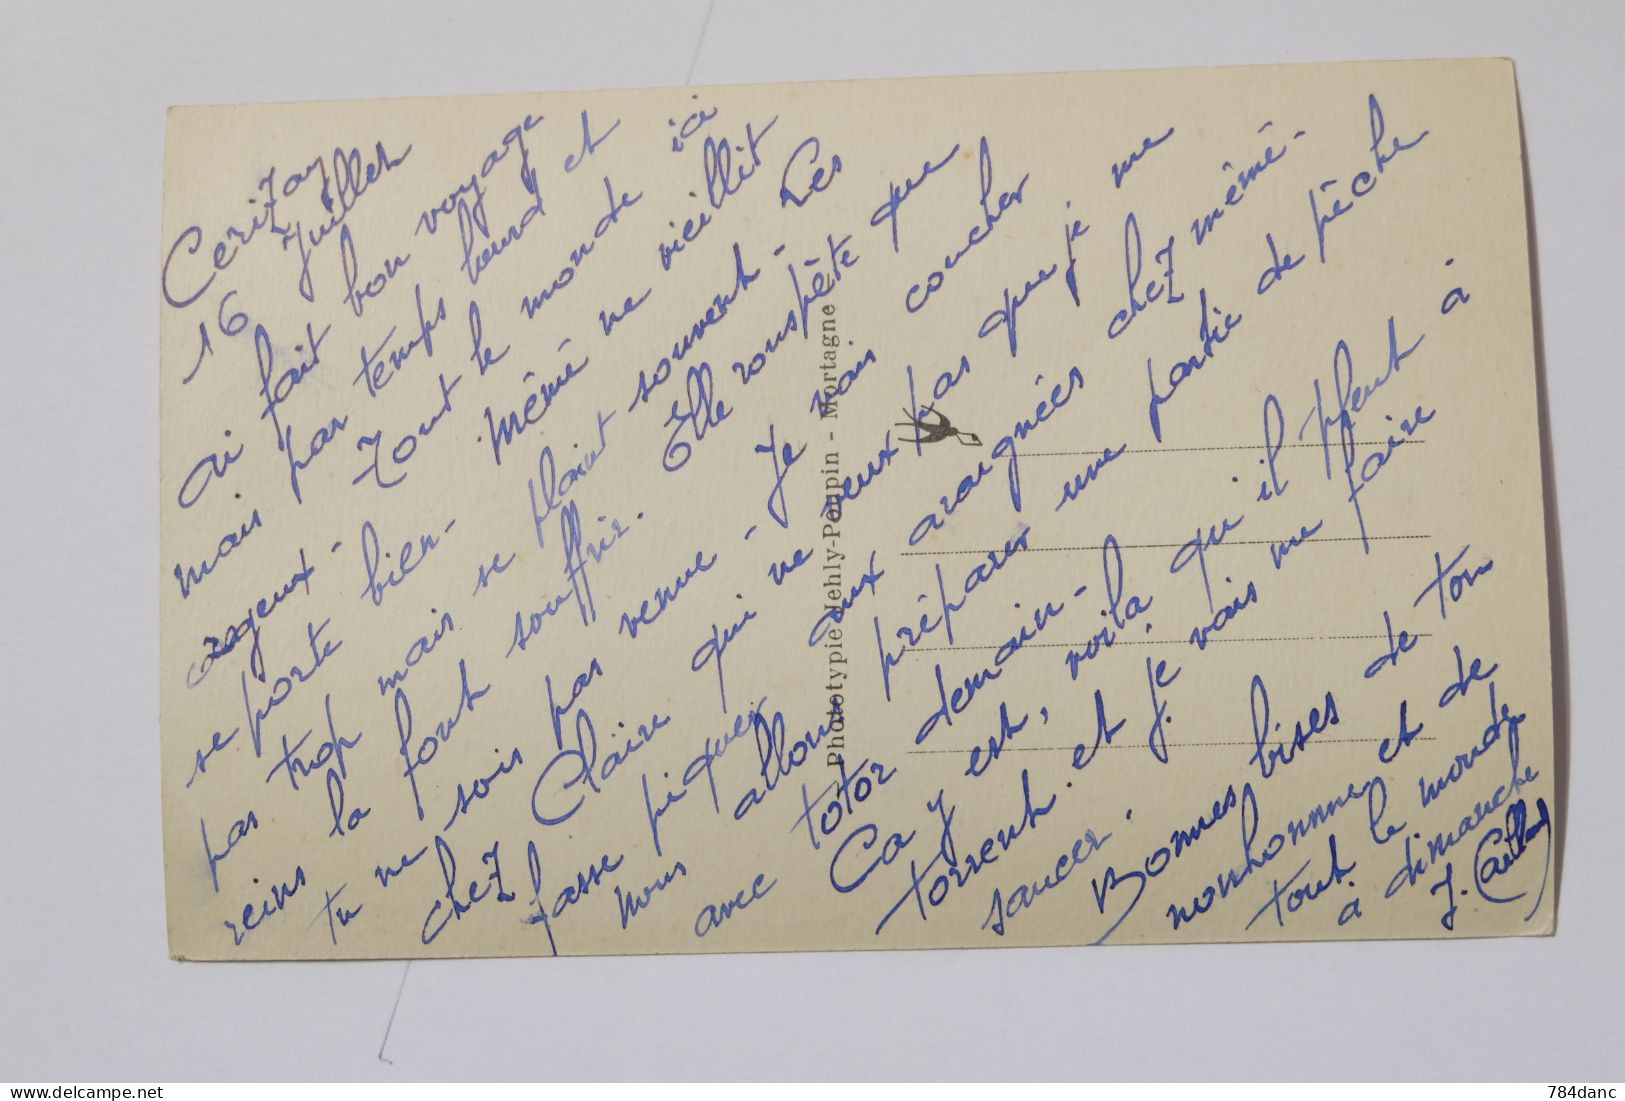 Cerizay
16 Juillet
ai fait bon voyage
mais par temps lourd et
orageux - Tout le monde ici
se porte bien - Mémé ne vieillit
pas trop mais se plaint souvent - Les
reins la font souffrir. Elle rouspète que
tu ne sois pas venue - Je vais coucher
chez Claire qui ne veux pas que je me
fasse piquer aux araignées chez mémé -
nous allons préparer une partie de pêche
avec totor demain - 
Ca y est, voilà qu'il pleut à
torrent et je vais me faire
saucer.
Bonnes bises de ton
nonhomme et de
tout le monde
à dimanche
J.
Phototypie Jehly-Poupin - Mortagne
784danc